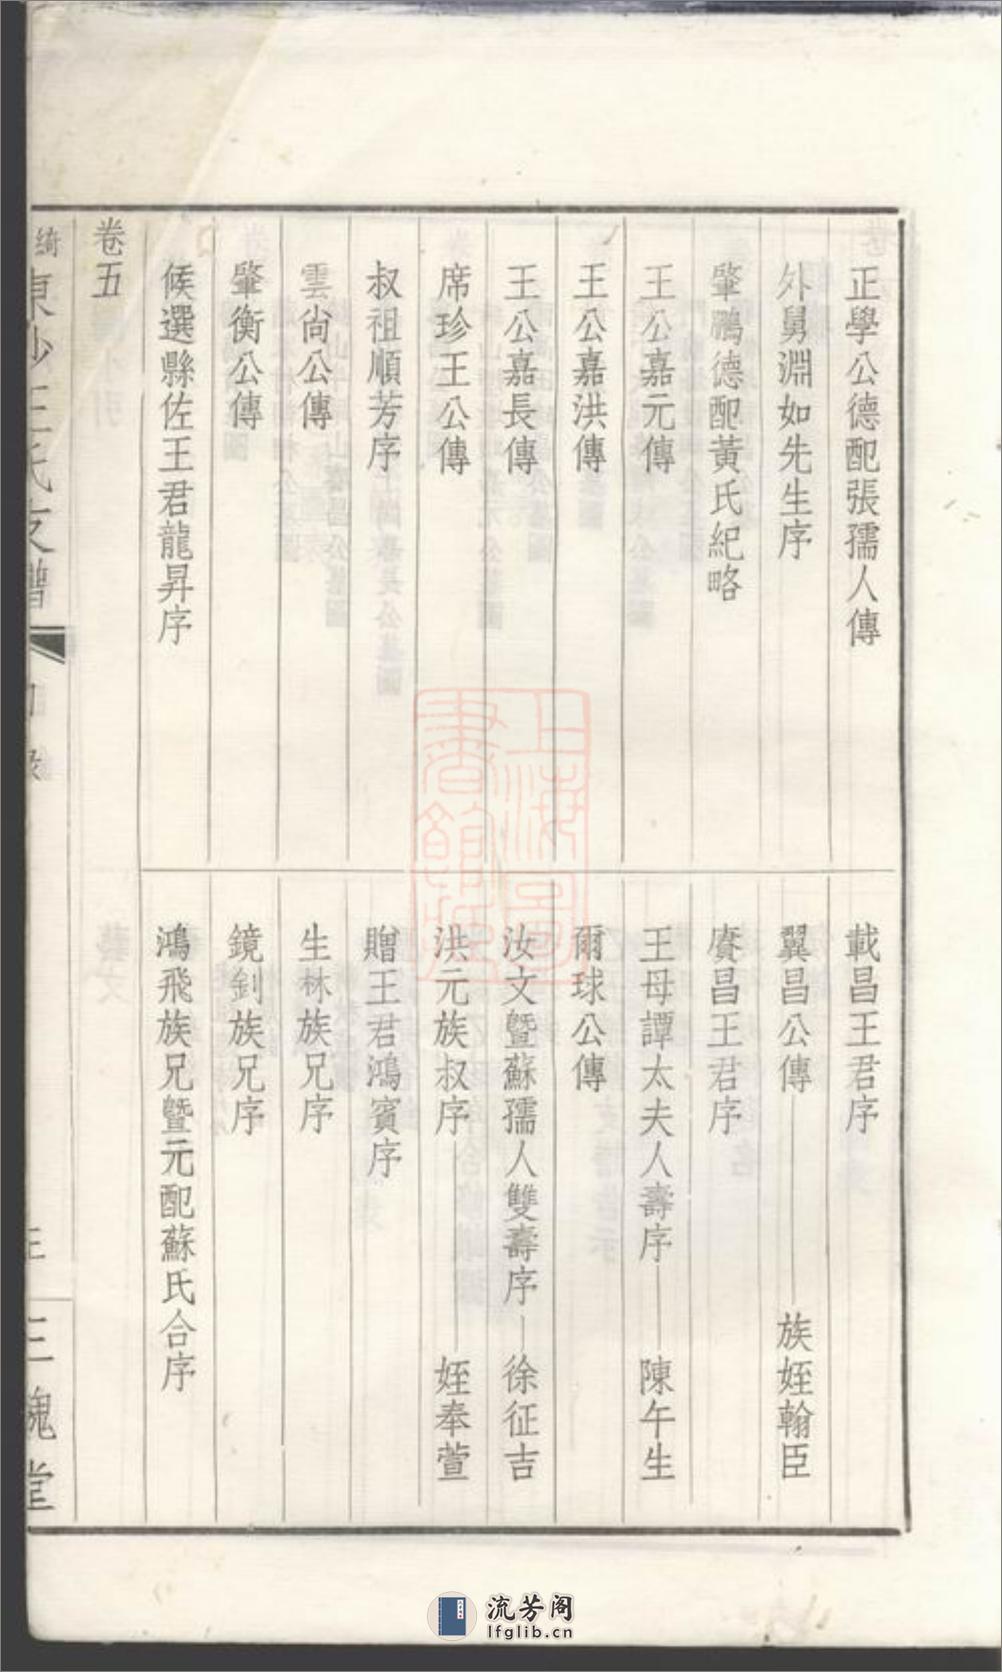 正學公德配張孺人傳
外舅淵如先生序
肇鵬德配黃氏紀略
王公嘉元傳
王公嘉洪傳
王公嘉長傳
席珍王公傳
叔祖順芳序
雲尚公傳
肇衡公傳
候選縣佐王君龍昇序
載昌王君序
翼昌公傳 族姪翰臣
賡昌王君序
王母譚太夫人壽序 陳午生
爾球公傳
汝文暨蘇孺人雙壽序 徐征吉
洪元族叔序 姪奉萱
贈王君鴻賓序
生林族兄序
鏡釗族兄序
鴻飛族兄暨元配蘇氏合序
卷五
東沙王氏支譜
目錄
三槐堂
上海圖書館藏
流芳阁
lfglib.cn